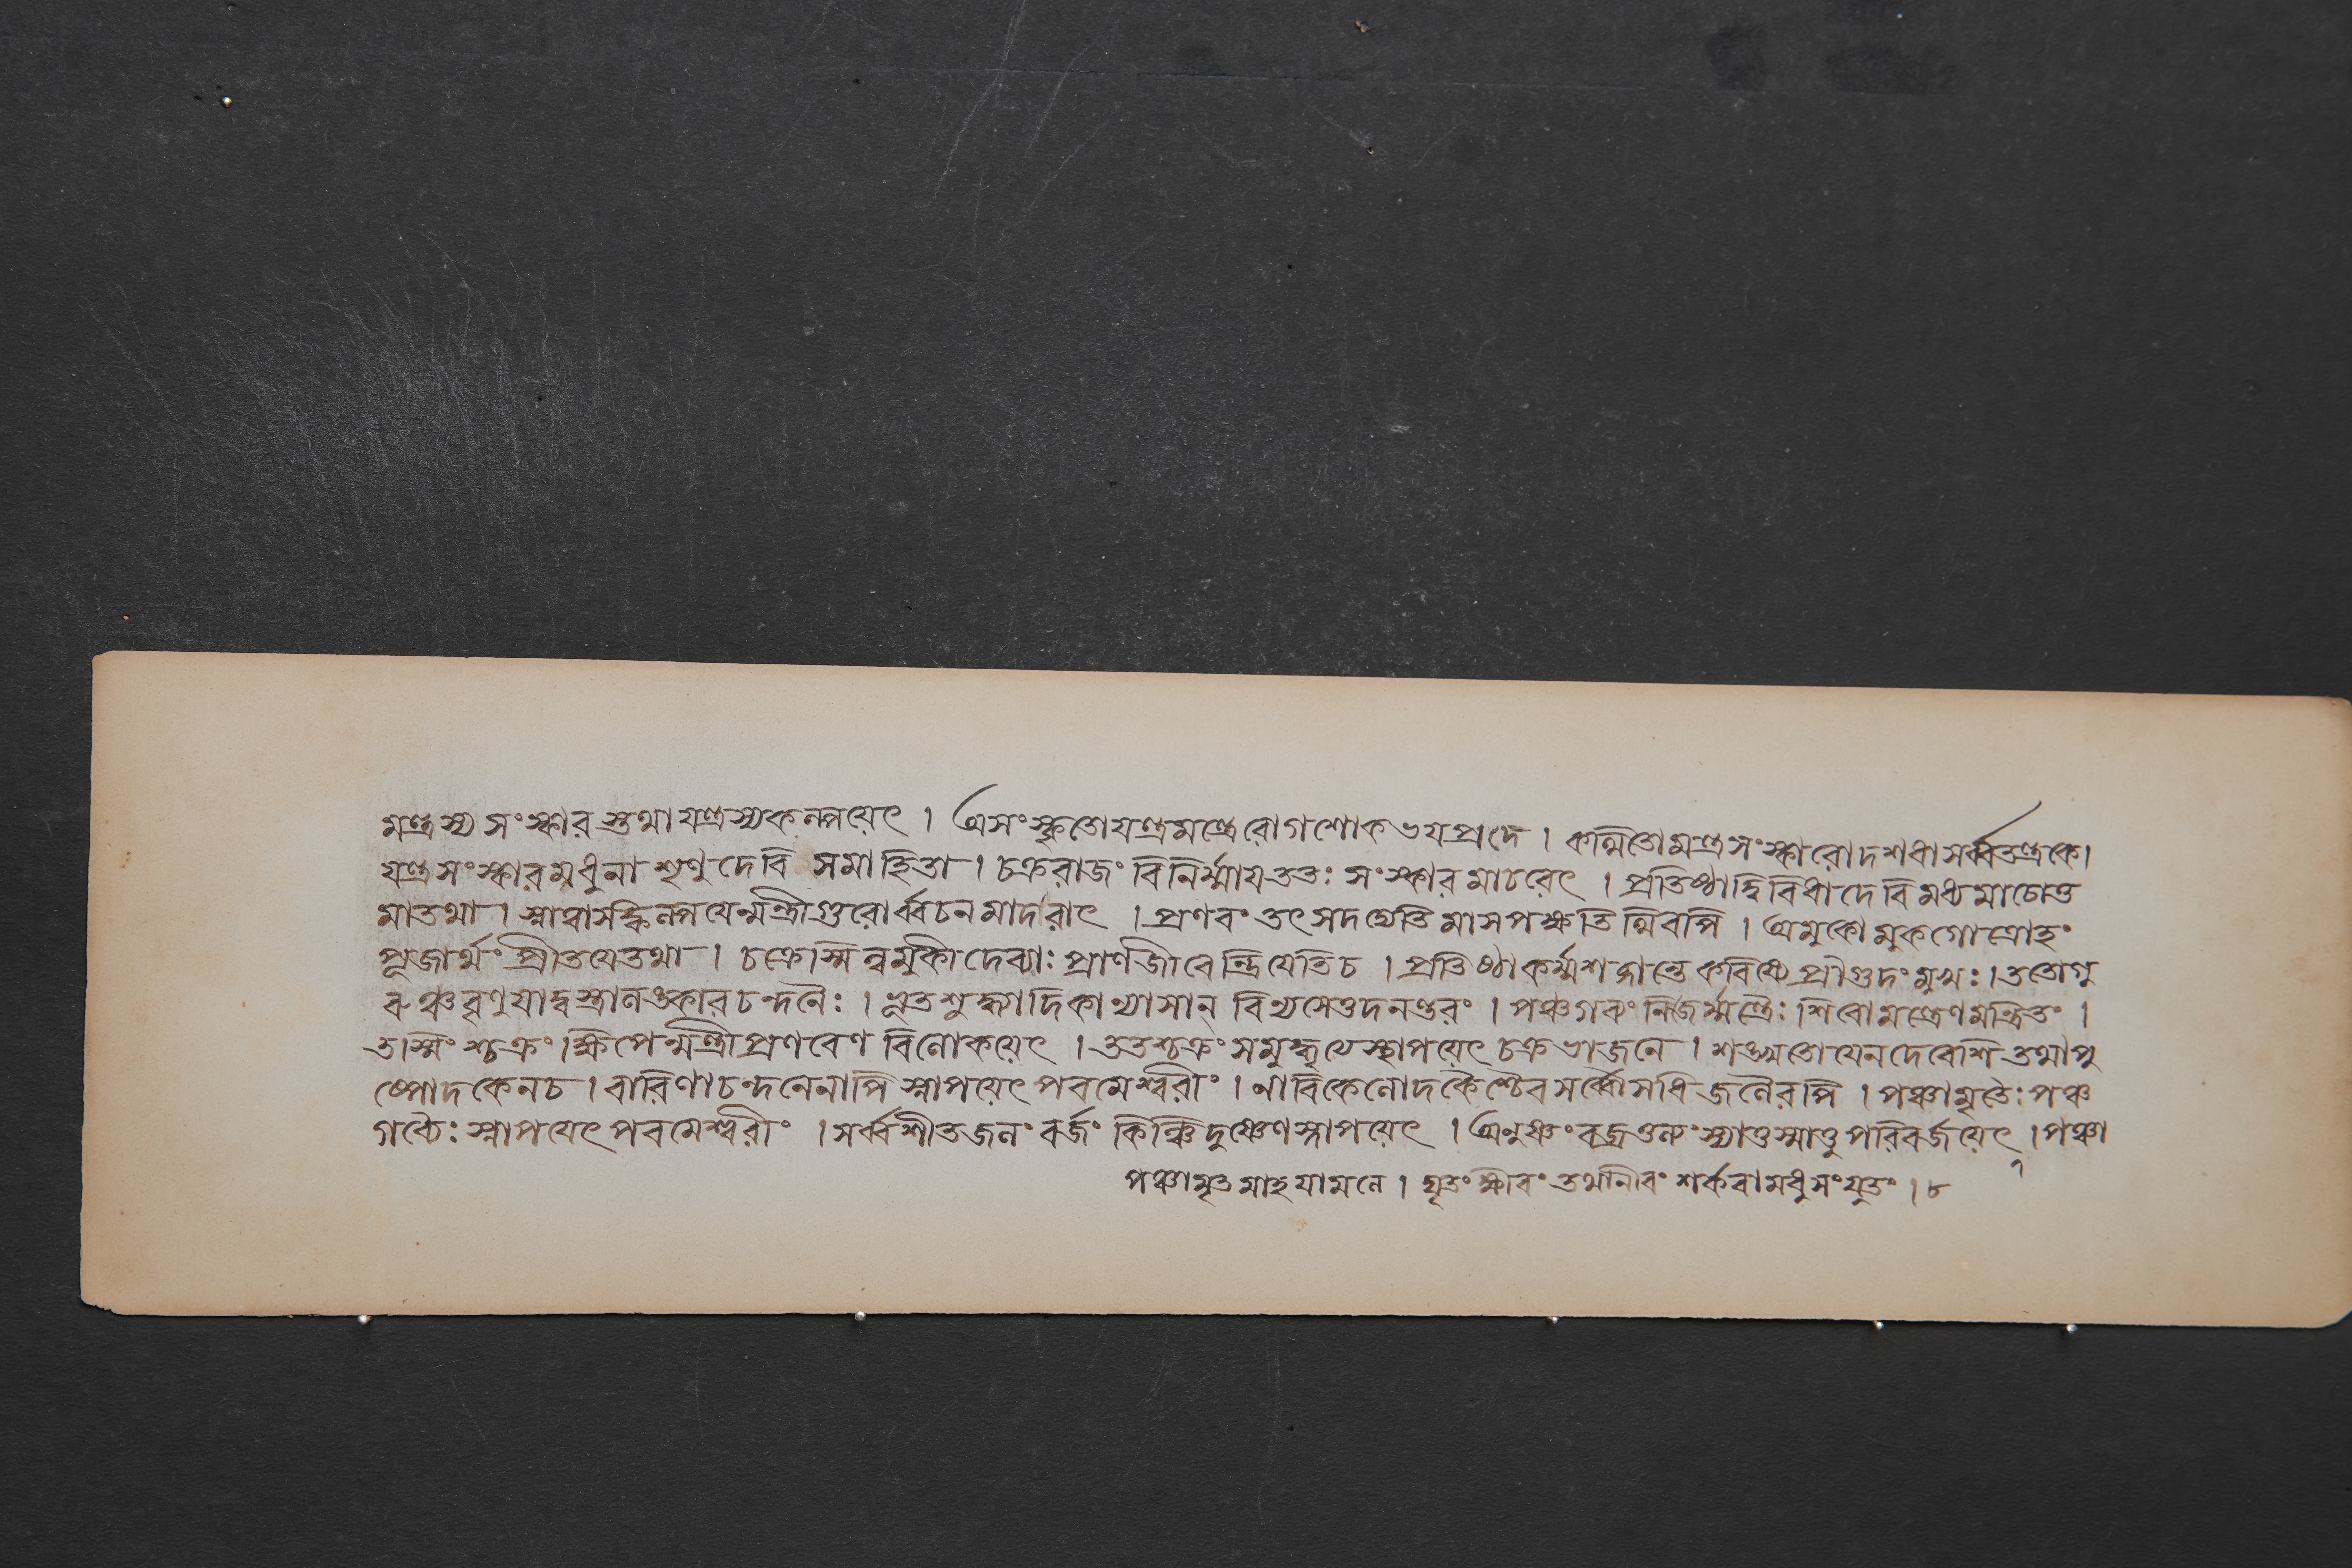 মন্ত্রস্য সংস্কারস্তথা যন্ত্রস্য কল্পয়েৎ । অসংস্কৃতো যন্ত্রমন্ত্রে রোগশোকভয়প্রদে । কথিতো মন্ত্রসংস্কারো দশধা সর্ব্বতন্ত্রকে।
যন্ত্রসংস্কারমধুনা শৃণু দেবি সমাহিতা । চক্ররাজং বিনির্ম্মায় ততঃ সংস্কারমাচরেৎ । প্রতিষ্ঠা দ্বিবিধা দেবি মধ্যমা চোত্ত
মা তথা । স্নাত্বা সঙ্কল্পয়েন্মন্ত্রী গুরোর্ব্বচনমাদরাৎ । প্রণবং তৎসদদ্যেতি মাসপক্ষতিথিরপি । অমুকোমুকগোত্রোহং
পূজার্থং প্রীতয়ে তথা । চক্রেস্মিন্নমুকী দেব্যাঃ প্রাণজীবেন্দ্রিয়েতি চ । প্রতিষ্ঠাকর্ম্মশব্দান্তে করিষ্যে প্রাগুদংমুখঃ । ততো গু
রুঞ্চ বৃণুয়াদ্বস্ত্রালঙ্কারচন্দনৈঃ । ভূতশুদ্ধ্যাদিকান্যাসান্ বিন্যসেত্তদনন্তরং । পঞ্চগব্যং নিজৈর্ম্মন্ত্রৈঃ শিবোমন্ত্রেণ মন্ত্রিতং ।
তস্মিংশ্চক্রং ক্ষিপেন্মন্ত্রী প্রণবেণ বিলোকয়েৎ । ততশ্চক্রং সমুদ্ধৃত্য স্থাপয়েৎ চক্রভাজনে । শঙ্খতোয়েন দেবেশি তথা পু
ষ্পোদকেন চ । বারিণা চন্দনেনাপি স্নাপয়েৎ পরমেশ্বরীং । নারিকেলোদকৈশ্চৈব সর্ব্বৌসধিজলৈরপি । পঞ্চামৃতৈঃ পঞ্চ
গব্যৈঃ স্নাপয়েৎ পরমেশ্বরীং । সর্ব্বশীতজলং বর্জং কিঞ্চিদুষ্ণেণ স্নাপয়েৎ । অনুষ্ণং বজ্রতুল্যং স্যাত্তস্মাত্তু পরিবর্জয়েৎ । পঞ্চা
পঞ্চামৃতমাহ যামলে । ঘৃতং ক্ষীরং তথা নীরং শর্করামধুসংযুতং । ৮